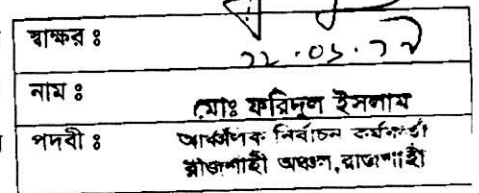 স্বাক্ষর ঃ
নাম ঃ
মোঃ ফরিদুল ইসলাম
পদবী ঃ
আঞ্চলিক নির্বাচন কর্মকর্তা
রাজশাহী অঞ্চল, রাজশাহী